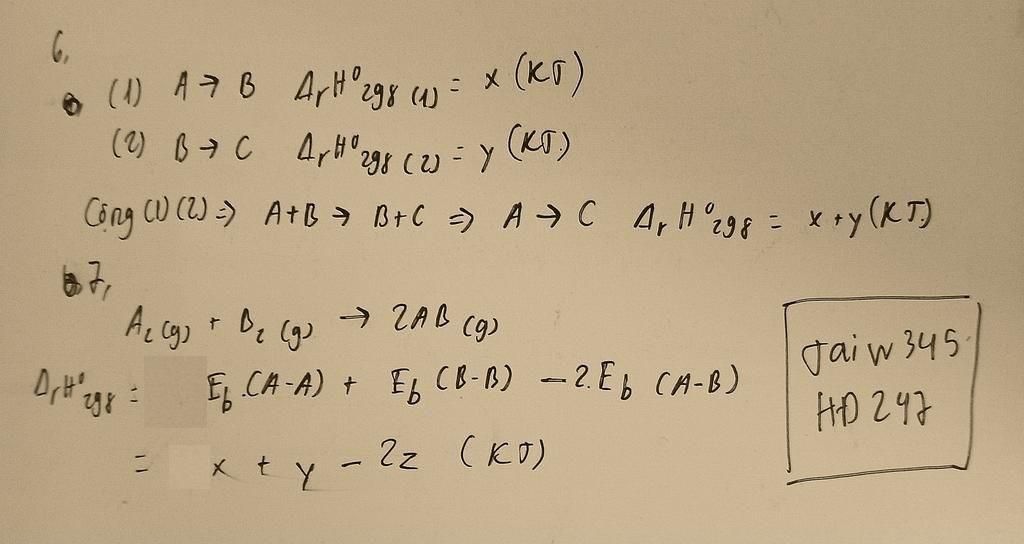 6,
(1) A → B ΔrH⁰298 (1) = x (KJ)
(2) B → C ΔrH⁰298 (2) = y (KJ)
Cộng (1) (2) ⇒ A+B → B+C ⇒ A → C ΔrH⁰298 = x+y (KJ)
7,
A2 (g) + B2 (g) → 2AB (g)
ΔrH⁰298 = Eb.(A-A) + Eb (B-B) - 2.Eb (A-B)
= x + y - 2z (KJ)
Jaiw345
HD247